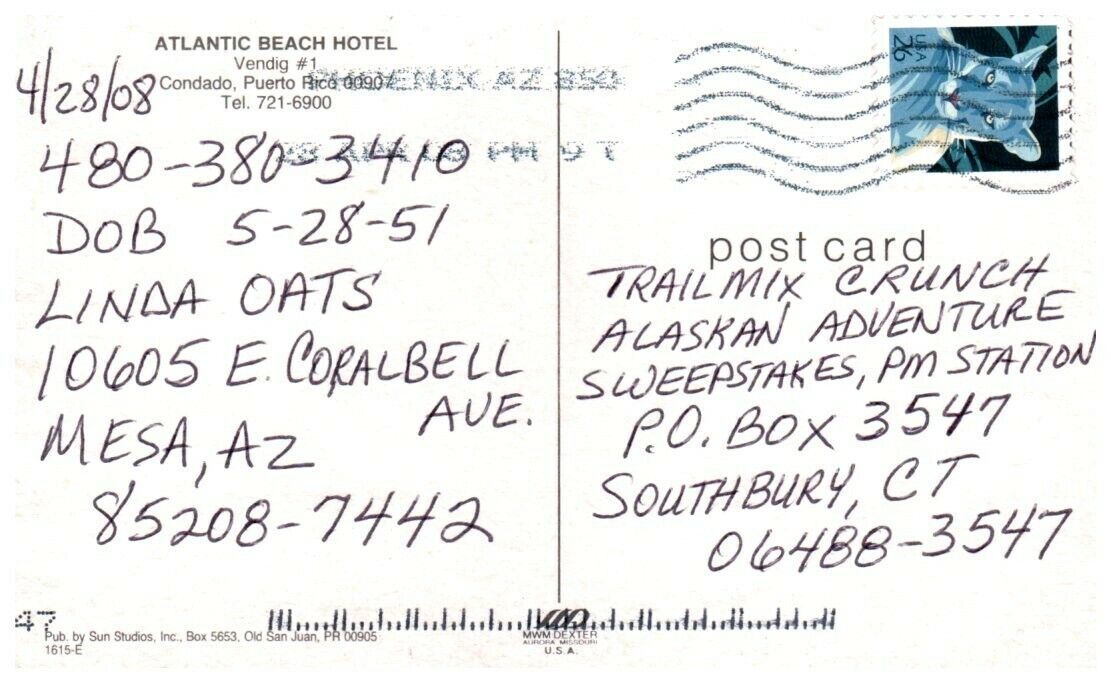 ATLANTIC BEACH HOTEL
Vendig #1
Condado, Puerto Rico 00907
Tel. 721-6900
4/28/08
480-380-3410
DOB 5-28-51
LINDA OATS
10605 E. CORALBELL
AVE.
MESA, AZ
85208-7442
PHOENIX AZ 850
PM 9 T
USA
26
post card
TRAILMIX CRUNCH
ALASKAN ADVENTURE
SWEEPSTAKES, PM STATION
P.O. BOX 3547
SOUTHBURY, CT
06488-3547
47
Pub. by Sun Studios, Inc., Box 5653, Old San Juan, PR 00905
1615-E
MWM DEXTER
AURORA MISSOURI
U.S.A.